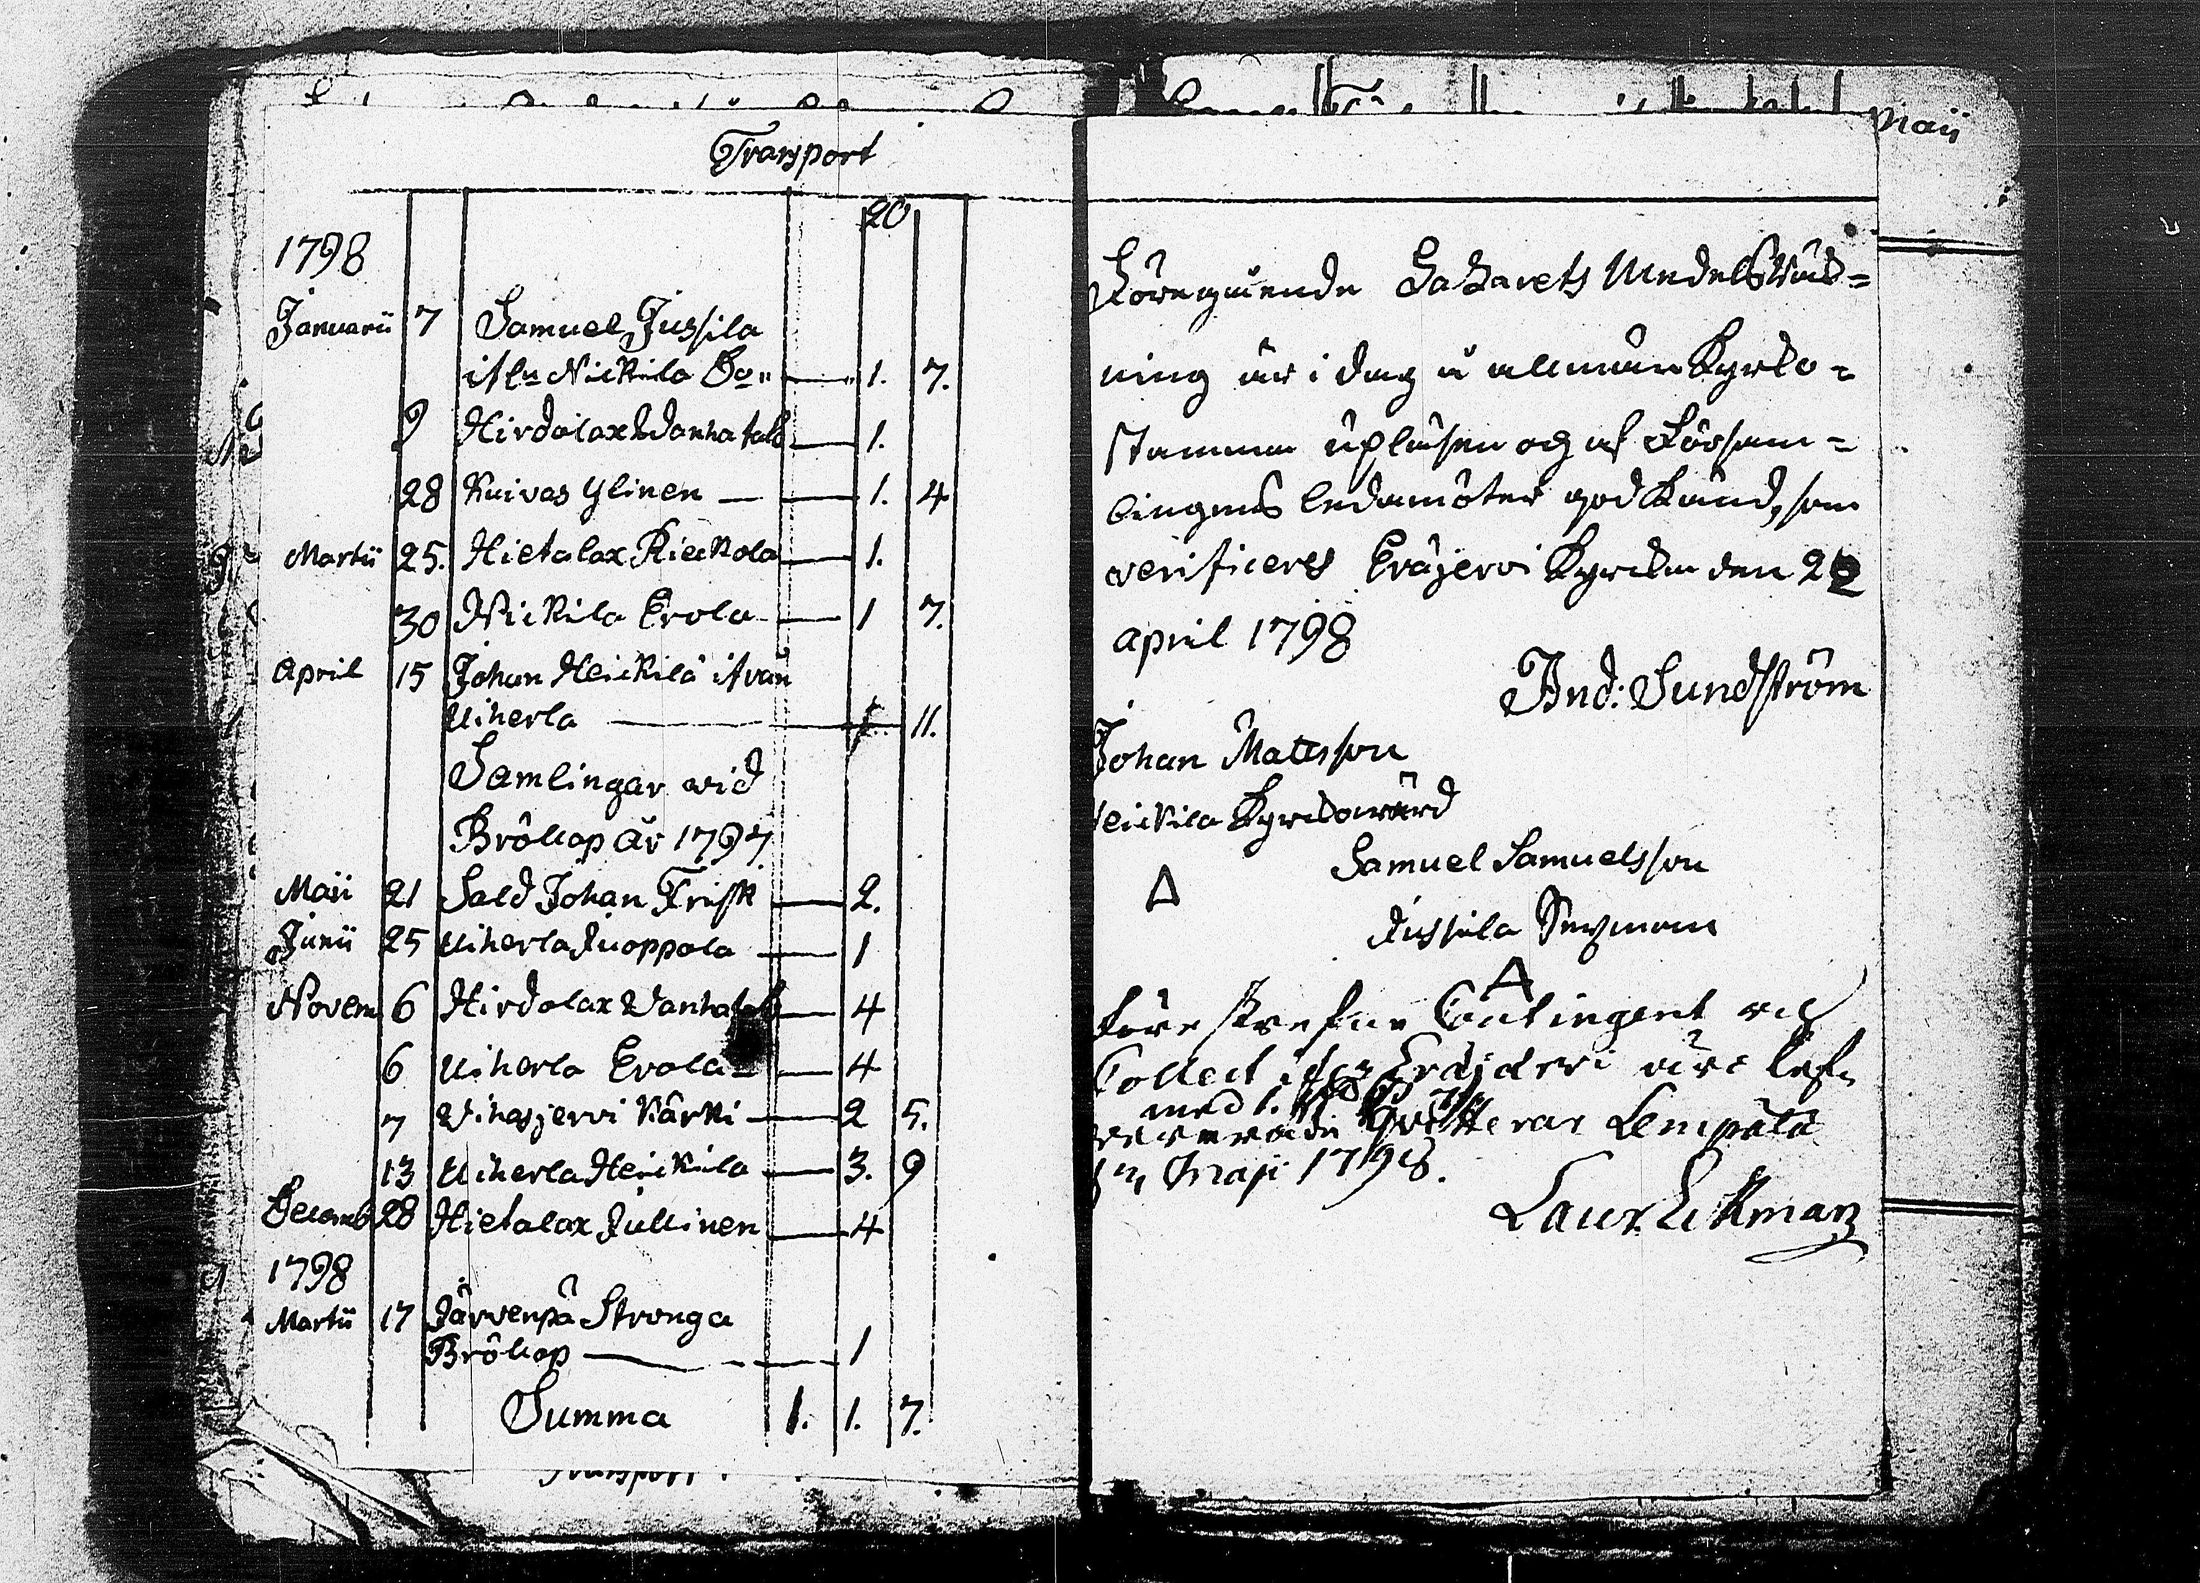 Transport
20
1798
Januarii 7 Samuel Jussila
Nickila 1. 7.
9 Hirdolax Wanhatalo 1.
28 Kuivas Ylinen 1. 4
Martii 25. Hietalax Rieckola 1.
30 Nickila Erola 1 7.
April 15 Johan Heickilä ifrån
Uiherla 11.
Samlingar wid
Bröllop år 1797
Maii 21 Sald Johan Frisk 2.
Junii 25 Uiherla Juoppola 1
Novem 6 Hirdolax Wanhatalo 4
6 Uiherla Erola 4
7 Vihasjervi Kärki 2 5.
13 Uiherla Heickila 3. 9
Decemb 28 Hietalax Jullinen 4
1798
Martii 17 Järvenpä Stronga
Bröllop 1
Summa 1. 1. 7.
Transport
Maii
Föregående Lazarets Medels Räk=
ning är i dag å allmän Kyrko=
stämma upläsen och af Församlingens
lingens ledamöter god känd, som
verificeres Eräjervi Kyrcka den 22
april 1798
And: Sundström
Johan Matsson
Heickila Kyrckowärd
Samuel Samuelsson
Jussila Sexman
Föreskrefne Contingent och
Collect Eräjderi
med 1.
qvitterar Lempälä
Maji 1798.
Laur. Ekman